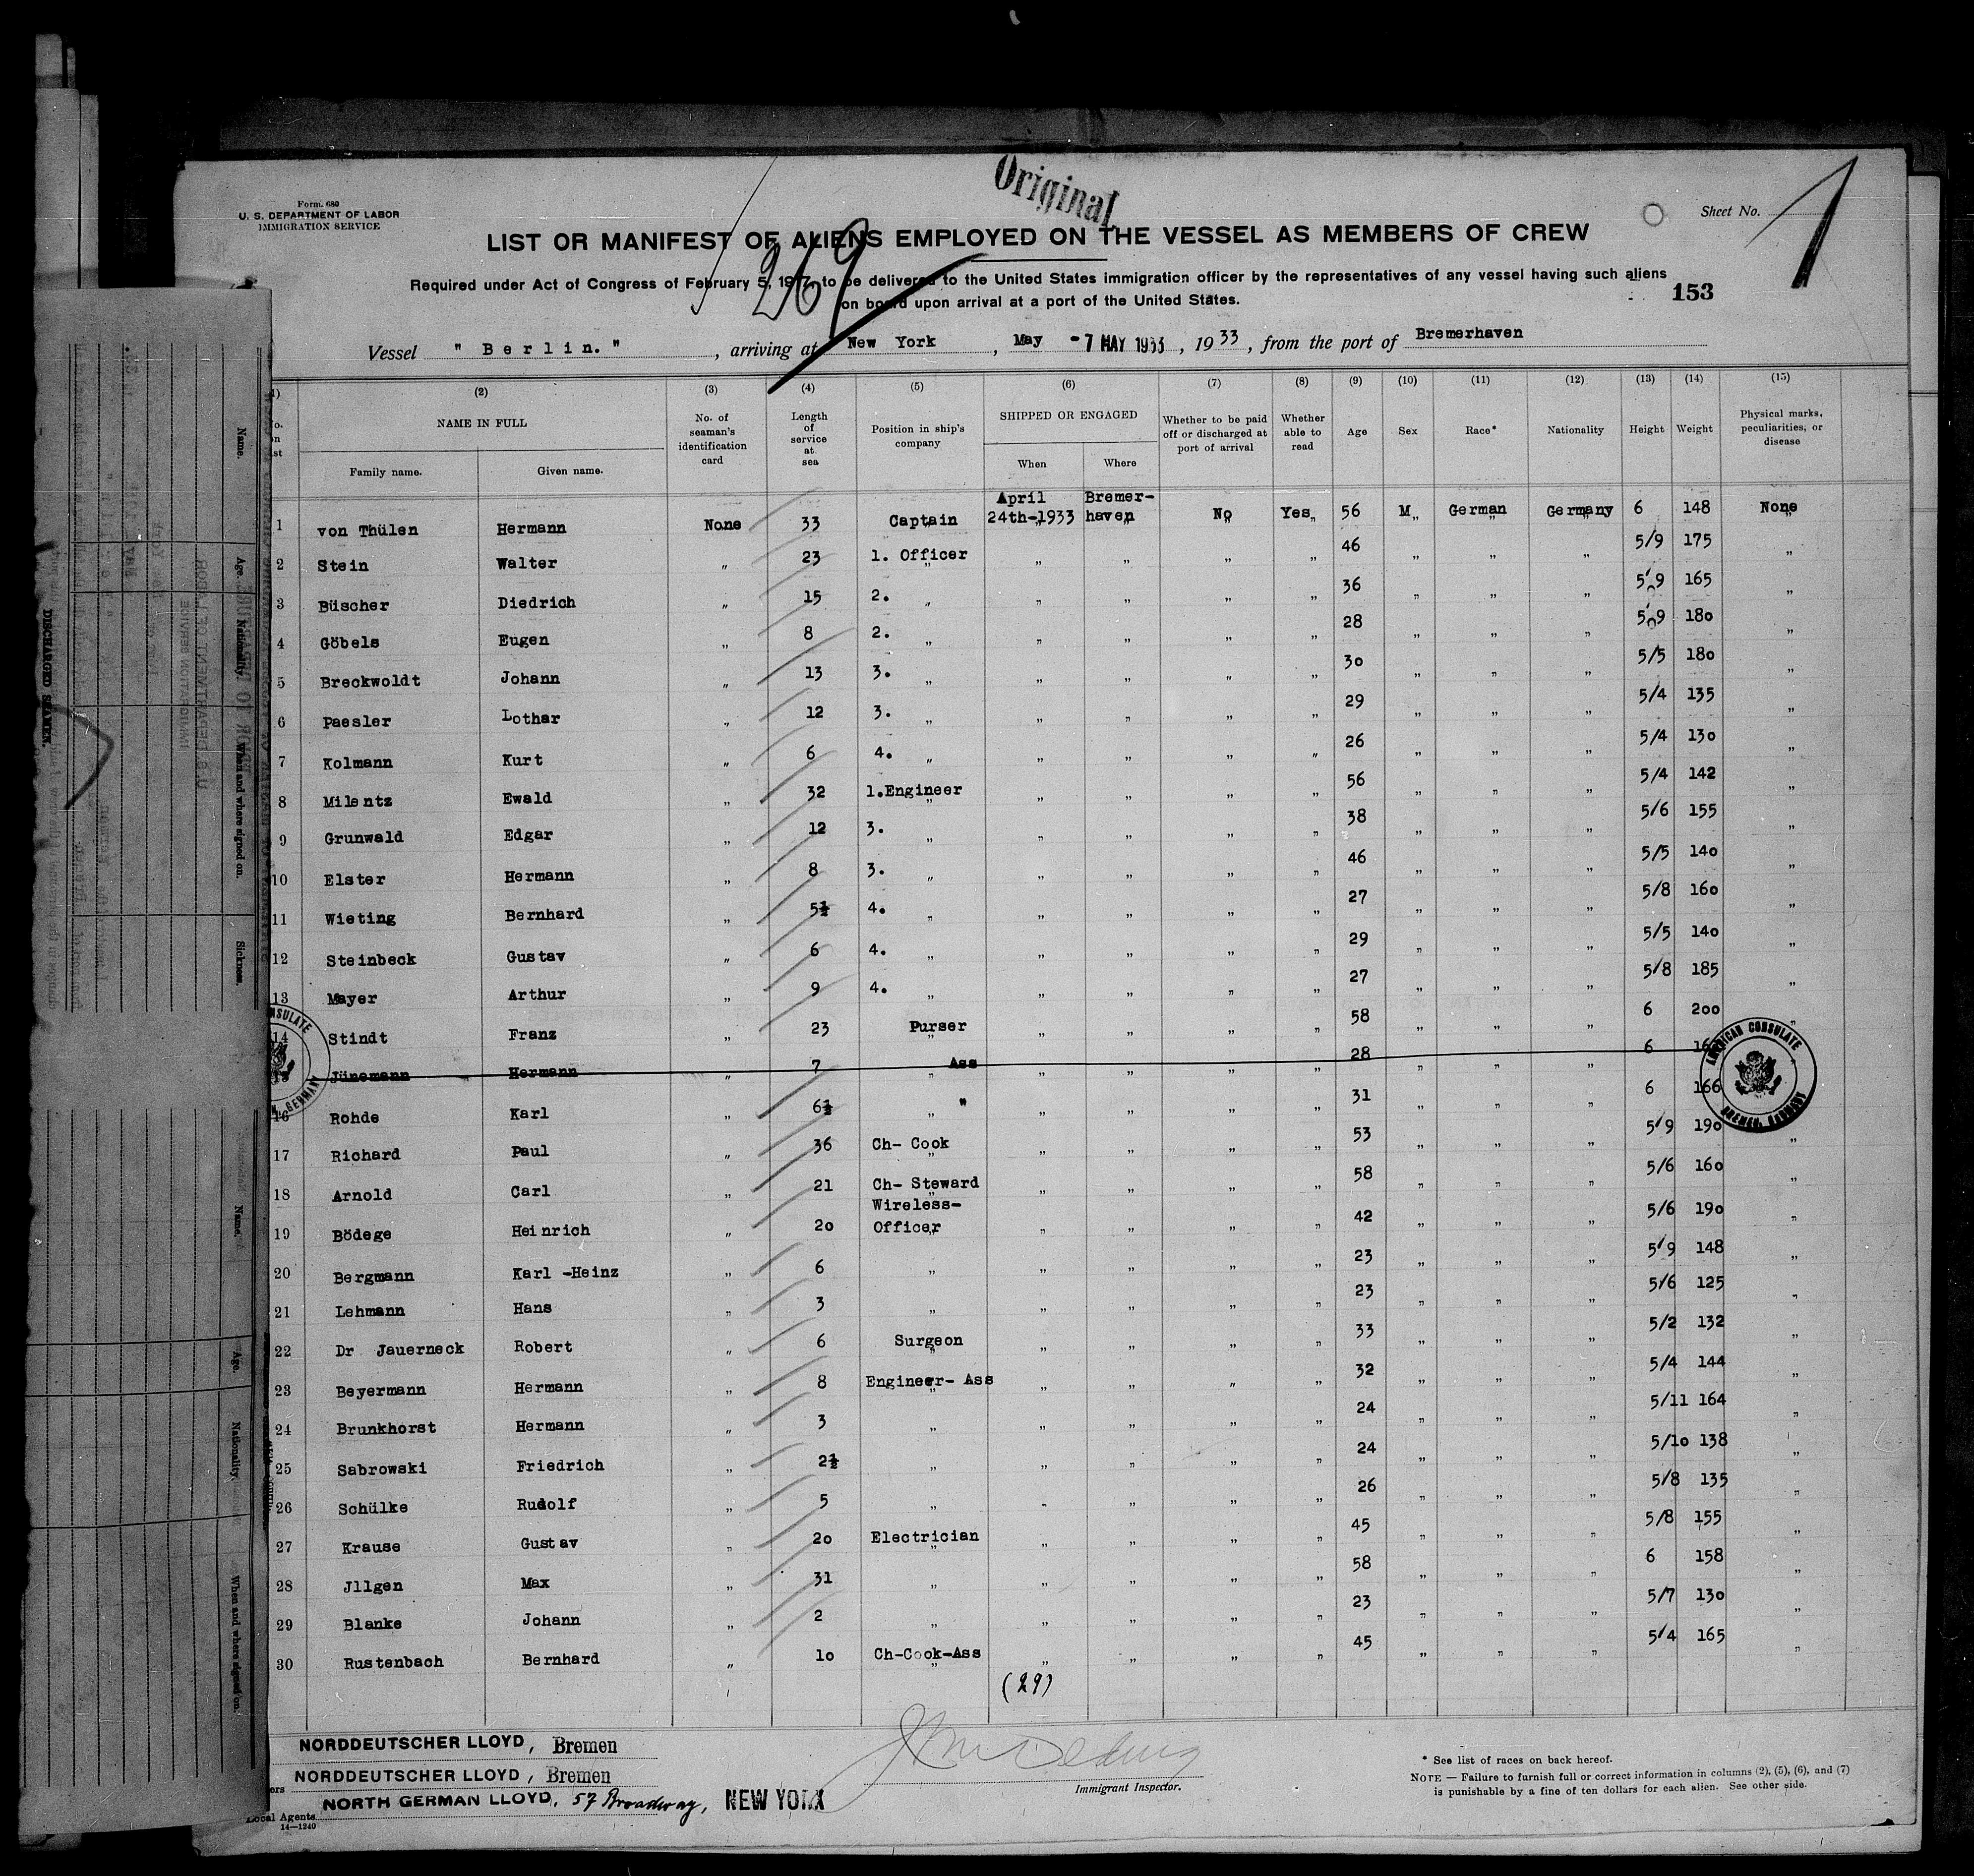 Original
Form. 680
U. S. DEPARTMENT OF LABOR
IMMIGRATION SERVICE
Sheet No. 1
LIST OR MANIFEST OF ALIENS EMPLOYED ON THE VESSEL AS MEMBERS OF CREW
269
Required under Act of Congress of February 5, 1917, to be delivered to the United States immigration officer by the representatives of any vessel having such aliens
on board upon arrival at a port of the United States.
153
Vessel " Berlin. " , arriving at New York , May -7 MAY 1933 , 19 33 , from the port of Bremerhaven
(2) (3) (4) (5) (6) (7) (8) (9) (10) (11) (12) (13) (14) (15)
NAME IN FULL No. of seaman's identification card Length of service at sea Position in ship's company SHIPPED OR ENGAGED Whether to be paid off or discharged at port of arrival Whether able to read Age Sex Race* Nationality Height Weight Physical marks, peculiarities, or disease
Family name. Given name. When Where
1 von Thülen Hermann None 33 Captain April 24th-1933 Bremer-haven No Yes 56 M German Germany 6 148 None
2 Stein Walter " 23 1. Officer " " " " 46 " " " 5/9 175 "
3 Büscher Diedrich " 15 2. " " " " " 36 " " " 5/9 165 "
4 Göbels Eugen " 8 2. " " " " " 28 " " " 5/9 180 "
5 Breckwoldt Johann " 13 3. " " " " " 30 " " " 5/5 180 "
6 Paesler Lothar " 12 3. " " " " " 29 " " " 5/4 135 "
7 Kolmann Kurt " 6 4. " " " " " 26 " " " 5/4 130 "
8 Milentz Ewald " 32 1.Engineer " " " " 56 " " " 5/4 142 "
9 Grunwald Edgar " 12 3. " " " " " 38 " " " 5/6 155 "
10 Elster Hermann " 8 3. " " " " " 46 " " " 5/5 140 "
11 Wieting Bernhard " 5½ 4. " " " " " 27 " " " 5/8 160 "
12 Steinbeck Gustav " 6 4. " " " " " 29 " " " 5/5 140 "
13 Mayer Arthur " 9 4. " " " " " 27 " " " 5/8 185 "
14 Stindt Franz " 23 Purser " " " " 58 " " " 6 200 "
15 Jünemann Hermann " 7 " Ass " " " " 28 " " " 6
16 Rohde Karl " 6½ " " " " " " 31 " " " 6 166
17 Richard Paul " 36 Ch- Cook " " " " 53 " " " 5/9 190 "
18 Arnold Carl " 21 Ch- Steward " " " " 58 " " " 5/6 160 "
19 Bödege Heinrich " 20 Wireless- Officer " " " " 42 " " " 5/6 190 "
20 Bergmann Karl -Heinz " 6 " " " " " 23 " " " 5/9 148 "
21 Lehmann Hans " 3 " " " " " 23 " " " 5/6 125 "
22 Dr Jauerneck Robert " 6 Surgeon " " " " 33 " " " 5/2 132 "
23 Beyermann Hermann " 8 Engineer- Ass " " " " 32 " " " 5/4 144 "
24 Brunkhorst Hermann " 3 " " " " " 24 " " " 5/11 164 "
25 Sabrowski Friedrich " 2½ " " " " " 24 " " " 5/10 138 "
26 Schülke Rudolf " 5 " " " " " 26 " " " 5/8 135 "
27 Krause Gustav " 20 Electrician " " " " 45 " " " 5/8 155 "
28 Jllgen Max " 31 " " " " " 58 " " " 6 158 "
29 Blanke Johann " 2 " " " " " 23 " " " 5/7 130 "
30 Rustenbach Bernhard " 10 Ch-Cook-Ass " " " " 45 " " " 5/4 165 "
(29)
AMERICAN CONSULATE
BREMEN, GERMANY
NORDDEUTSCHER LLOYD, Bremen
NORDDEUTSCHER LLOYD, Bremen
Local Agents NORTH GERMAN LLOYD, 57 Broadway, NEW YORK
14—1240
Immigrant Inspector.
* See list of races on back hereof.
NOTE — Failure to furnish full or correct information in columns (2), (5), (6), and (7)
is punishable by a fine of ten dollars for each alien. See other side.
Name.
Age.
Nationality.
When and where signed on.
Sickness.
DISCHARGED SEAMEN.
Name.
Age.
Nationality.
When and where signed on.